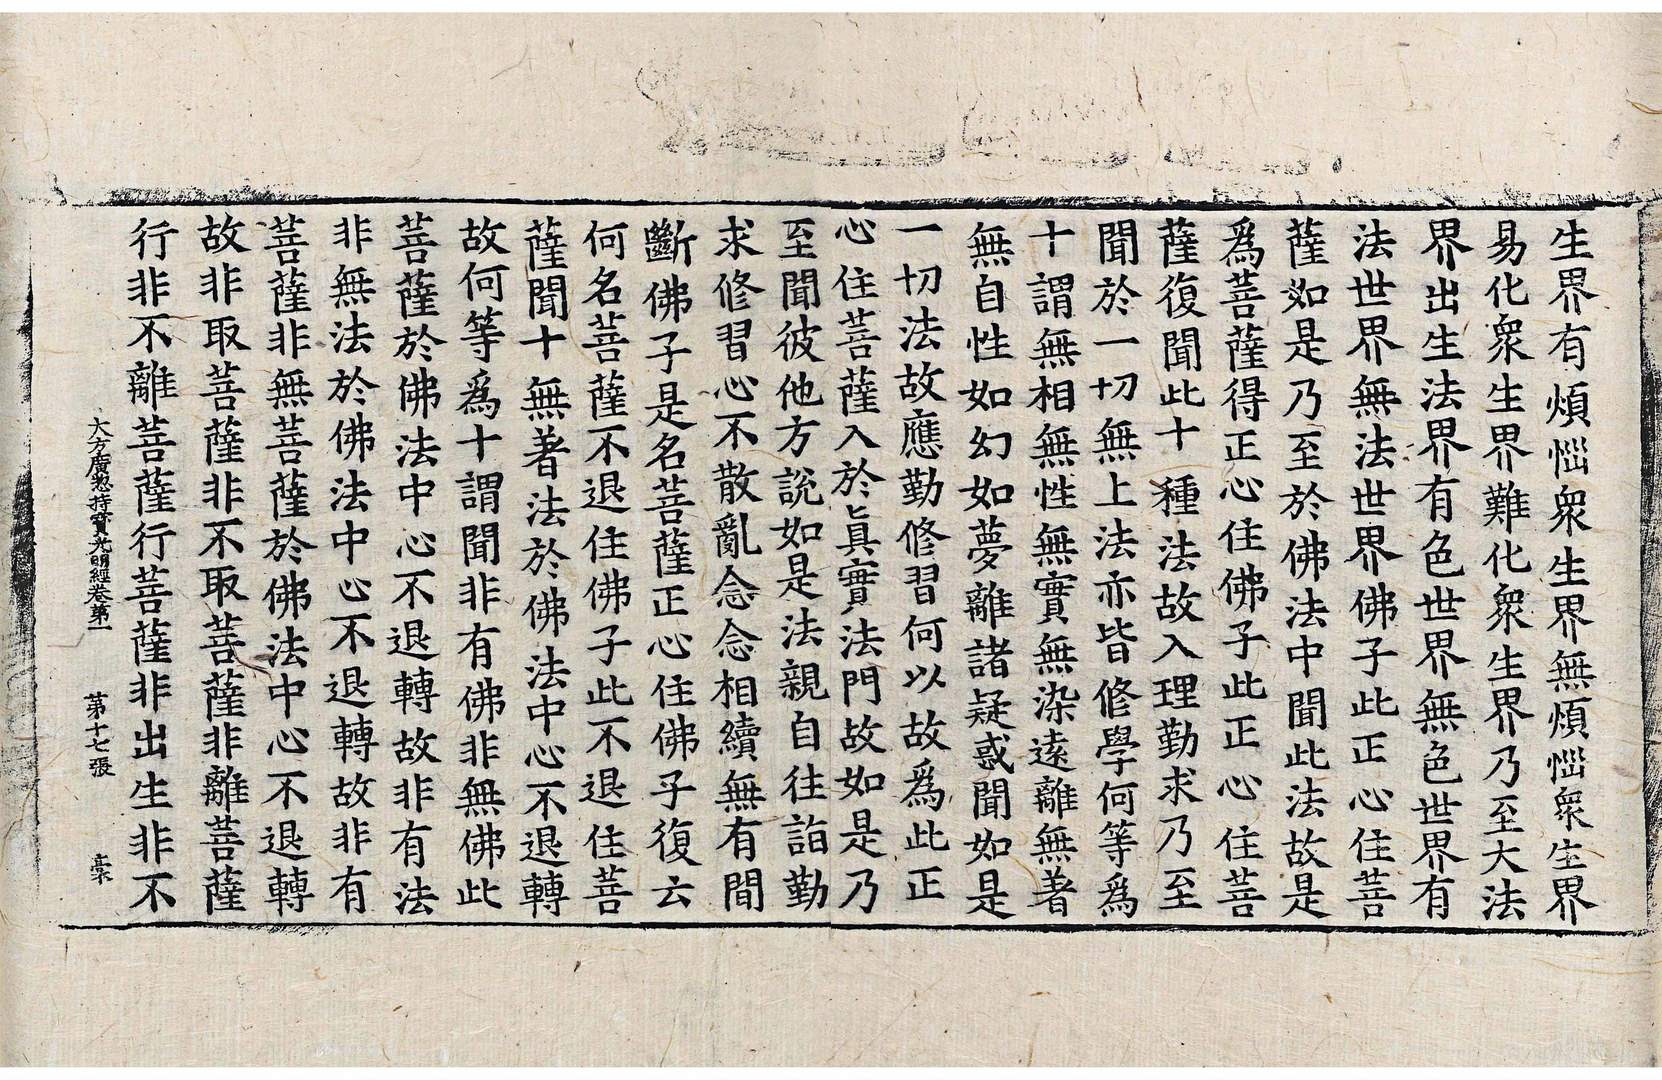 生界有煩惱衆生界無煩惱衆生界
易化衆生界難化衆生界乃至大法
界出生法界有色世界無色世界有
法世界無法世界佛子此正心住菩
薩如是乃至於佛法中聞此法故是
爲菩薩得正心住佛子此正心住菩
薩復聞此十種法故入理勤求乃至
聞於一切無上法亦皆修學何等爲
十謂無相無性無實無染遠離無著
無自性如幻如夢離諸疑惑聞如是
一切法故應勤修習何以故爲此正
心住菩薩入於眞實法門故如是乃
至聞彼他方說如是法親自往詣勤
求修習心不散亂念念相續無有間
斷佛子是名菩薩正心住佛子復云
何名菩薩不退住佛子此不退住菩
薩聞十無著法於佛法中心不退轉
故何等爲十謂聞非有佛非無佛此
菩薩於佛法中心不退轉故非有法
非無法於佛法中心不退轉故非有
菩薩非無菩薩於佛法中心不退轉
故非取菩薩非不取菩薩非離菩薩
行非不離菩薩行菩薩非出生非不
大方廣揔持寶光明經卷第一　第十七張　槀